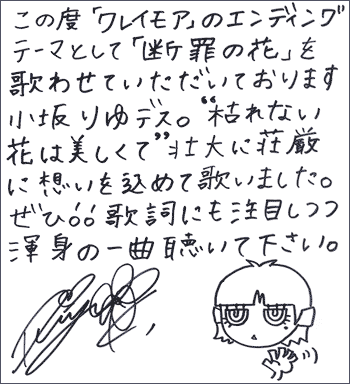 この度「クレイモア」のエンディング
テーマとして「断罪の花」を
歌わせていただいております
小坂りゆデス。“枯れない
花は美しくて”壮大に荘厳
に想いを込めて歌いました。
ぜひ!!歌詞にも注目しつつ
渾身の一曲聴いて下さい。